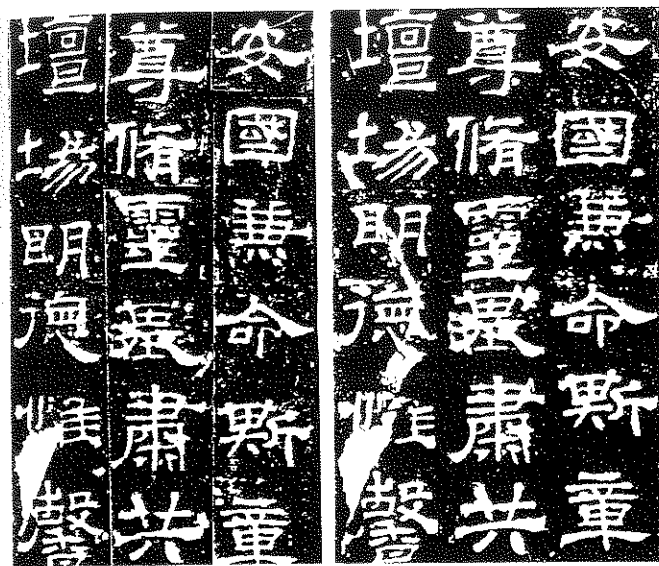 安國兼命斯章
尊脩靈基肅共
壇場明德惟馨
安國兼命斯章
尊脩靈基肅共
壇場明德惟馨